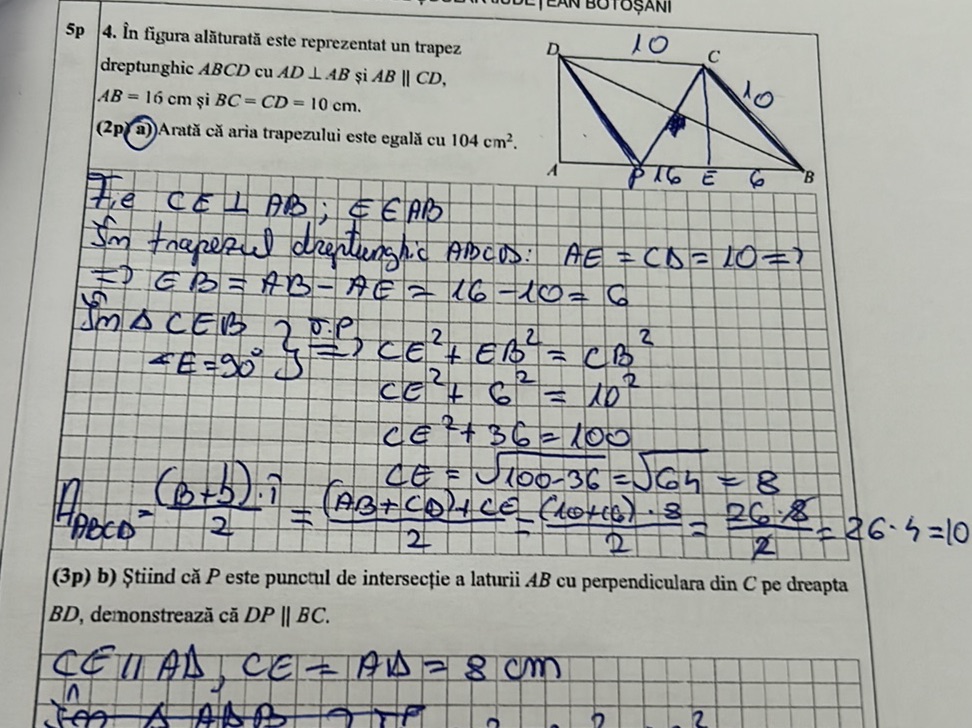 JUDEȚEAN BOTOȘANI
5p 4. În figura alăturată este reprezentat un trapez
dreptunghic ABCD cu AD ⊥ AB și AB || CD,
AB = 16 cm și BC = CD = 10 cm.
(2p) a) Arată că aria trapezului este egală cu 104 cm².
D 10 C
10
A P 16 E 6 B
Fie CE ⊥ AB; E ∈ AB
În trapezul dreptunghic ABCD: AE = CD = 10 =>
=> EB = AB - AE = 16 - 10 = 6
În Δ CEB
∢E = 90° } T.P => CE² + EB² = CB²
CE² + 6² = 10²
CE² + 36 = 100
CE = √100-36 = √64 = 8
A ABCD = (B+b)·î / 2 = (AB+CD)+CE / 2 = (10+16)·8 / 2 = 26·8 / 2 = 26·4 = 10
(3p) b) Știind că P este punctul de intersecție a laturii AB cu perpendiculara din C pe dreapta
BD, demonstrează că DP || BC.
CE || AD, CE = AD = 8 cm
În Δ ADB